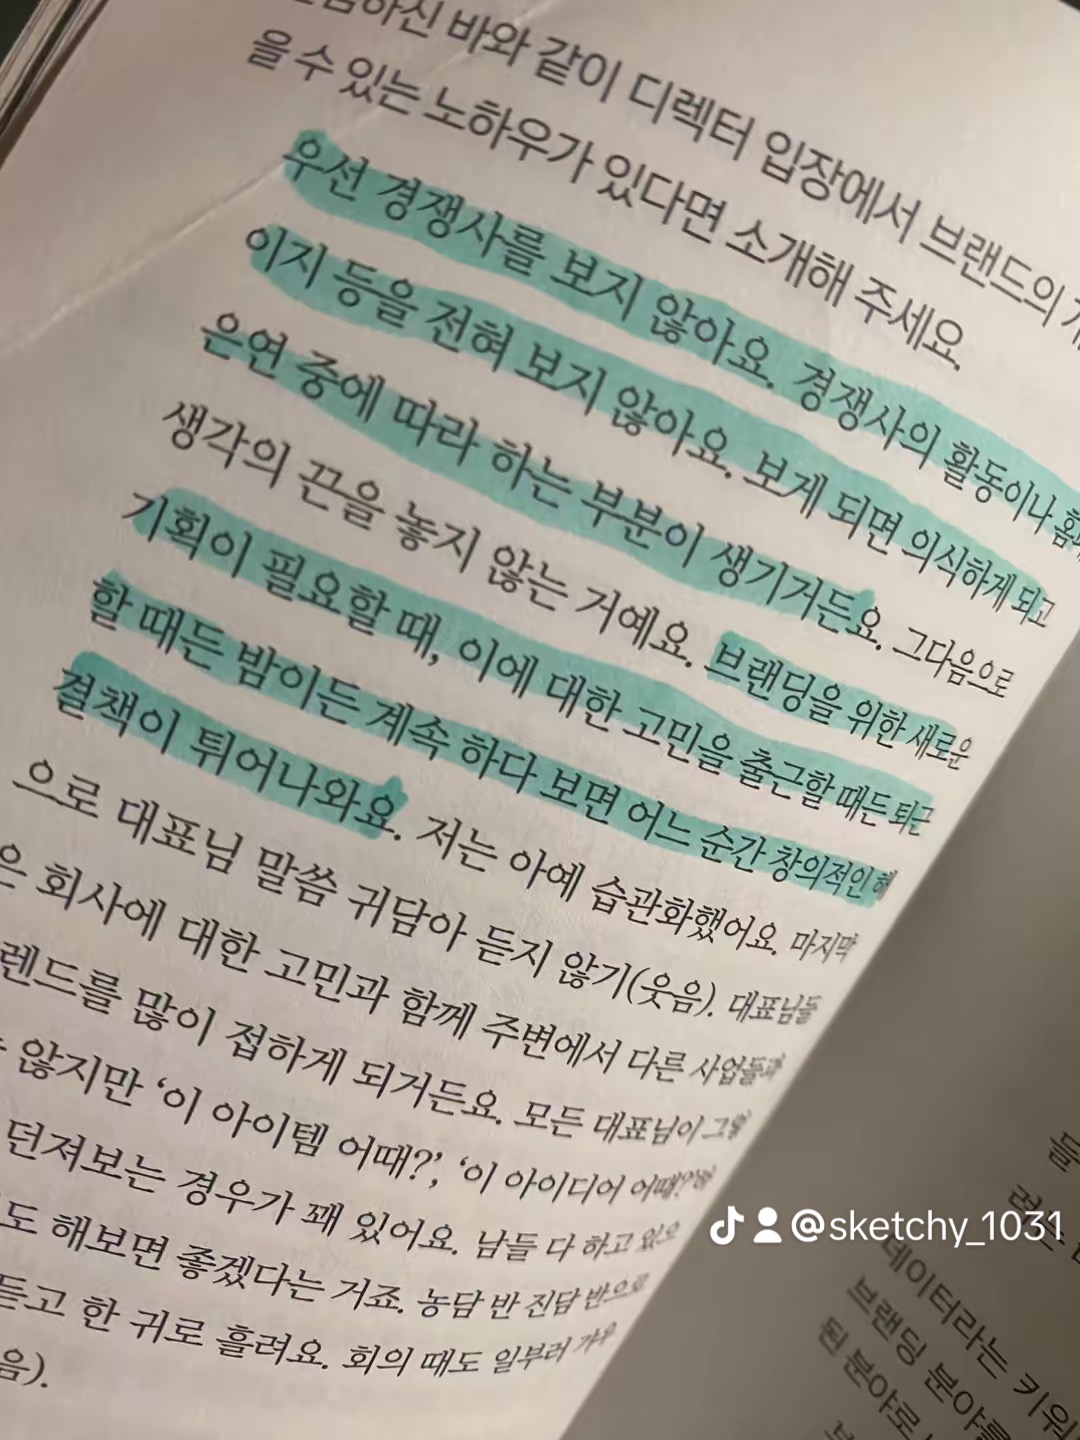 하신 바와 같이 디렉터 입장에서 브랜드의
을 수 있는 노하우가 있다면 소개해 주세요.
우선 경쟁사를 보지 않아요. 경쟁사의 활동이나
이지 등을 전혀 보지 않아요. 보게 되면 의식하게 되고
은연 중에 따라 하는 부분이 생기거든요. 그다음으로
생각의 끈을 놓지 않는 거예요. 브랜딩을 위한 새로운
기획이 필요할 때, 이에 대한 고민을 출근할 때든 퇴근
할 때든 밤이든 계속 하다 보면 어느 순간 창의적인 해
결책이 튀어나와요. 저는 아예 습관화했어요. 마지막
으로 대표님 말씀 귀담아 듣지 않기(웃음). 대표님들
은 회사에 대한 고민과 함께 주변에서 다른 사업들과
렌드를 많이 접하게 되거든요. 모든 대표님이 그렇
않지만 ‘이 아이템 어때?’, ‘이 아이디어 어때?’
던져보는 경우가 꽤 있어요. 남들 다 하고 있으
도 해보면 좋겠다는 거죠. 농담 반 진담 반으로
듣고 한 귀로 흘려요. 회의 때도 일부러
음).
@sketchy_1031
들
데이터라는 키워
브랜딩 분야를
된 분야로